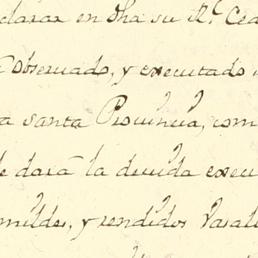 clarar en dha su Rl. Ced
observado, y executado
a santa Provincia, com
le dará la devida execu
mildes, y rendidos Vasall